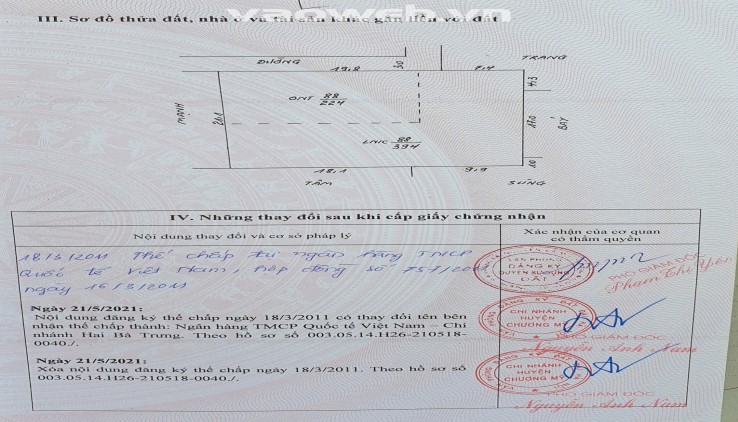 xaoweb.vn
III. Sơ đồ thửa đất, nhà ở và tài sản khác gắn liền với đất
ĐƯỜNG TRANG
19,8 30 7,4
4,3
ONT 88/224
MẠNH 20,1 17,0 BẢY
LNK 88/394
10
18,1 9,9
TÂM SỬNG
IV. Những thay đổi sau khi cấp giấy chứng nhận
Nội dung thay đổi và cơ sở pháp lý
Xác nhận của cơ quan
có thẩm quyền
18/3/2011 Thế chấp tại ngân hàng TMCP
Quốc tế Việt Nam, hợp đồng số 757/2011
ngày 16/3/2011
VĂN PHÒNG
ĐĂNG KÝ
QUYỀN SỬ DỤNG
ĐẤT
PHÓ GIÁM ĐỐC
Phạm Thị Yên
Ngày 21/5/2021:
Nội dung đăng ký thế chấp ngày 18/3/2011 có thay đổi tên bên
nhận thế chấp thành: Ngân hàng TMCP Quốc tế Việt Nam – Chi
nhánh Hai Bà Trưng. Theo hồ sơ số 003.05.14.H26-210518-
0040./.
CHI NHÁNH
HUYỆN
CHƯƠNG MỸ
PHÓ GIÁM ĐỐC
Nguyễn Anh Nam
Ngày 21/5/2021:
Xóa nội dung đăng ký thế chấp ngày 18/3/2011. Theo hồ sơ số
003.05.14.H26-210518-0040./.
CHI NHÁNH
HUYỆN
CHƯƠNG MỸ
PHÓ GIÁM ĐỐC
Nguyễn Anh Nam